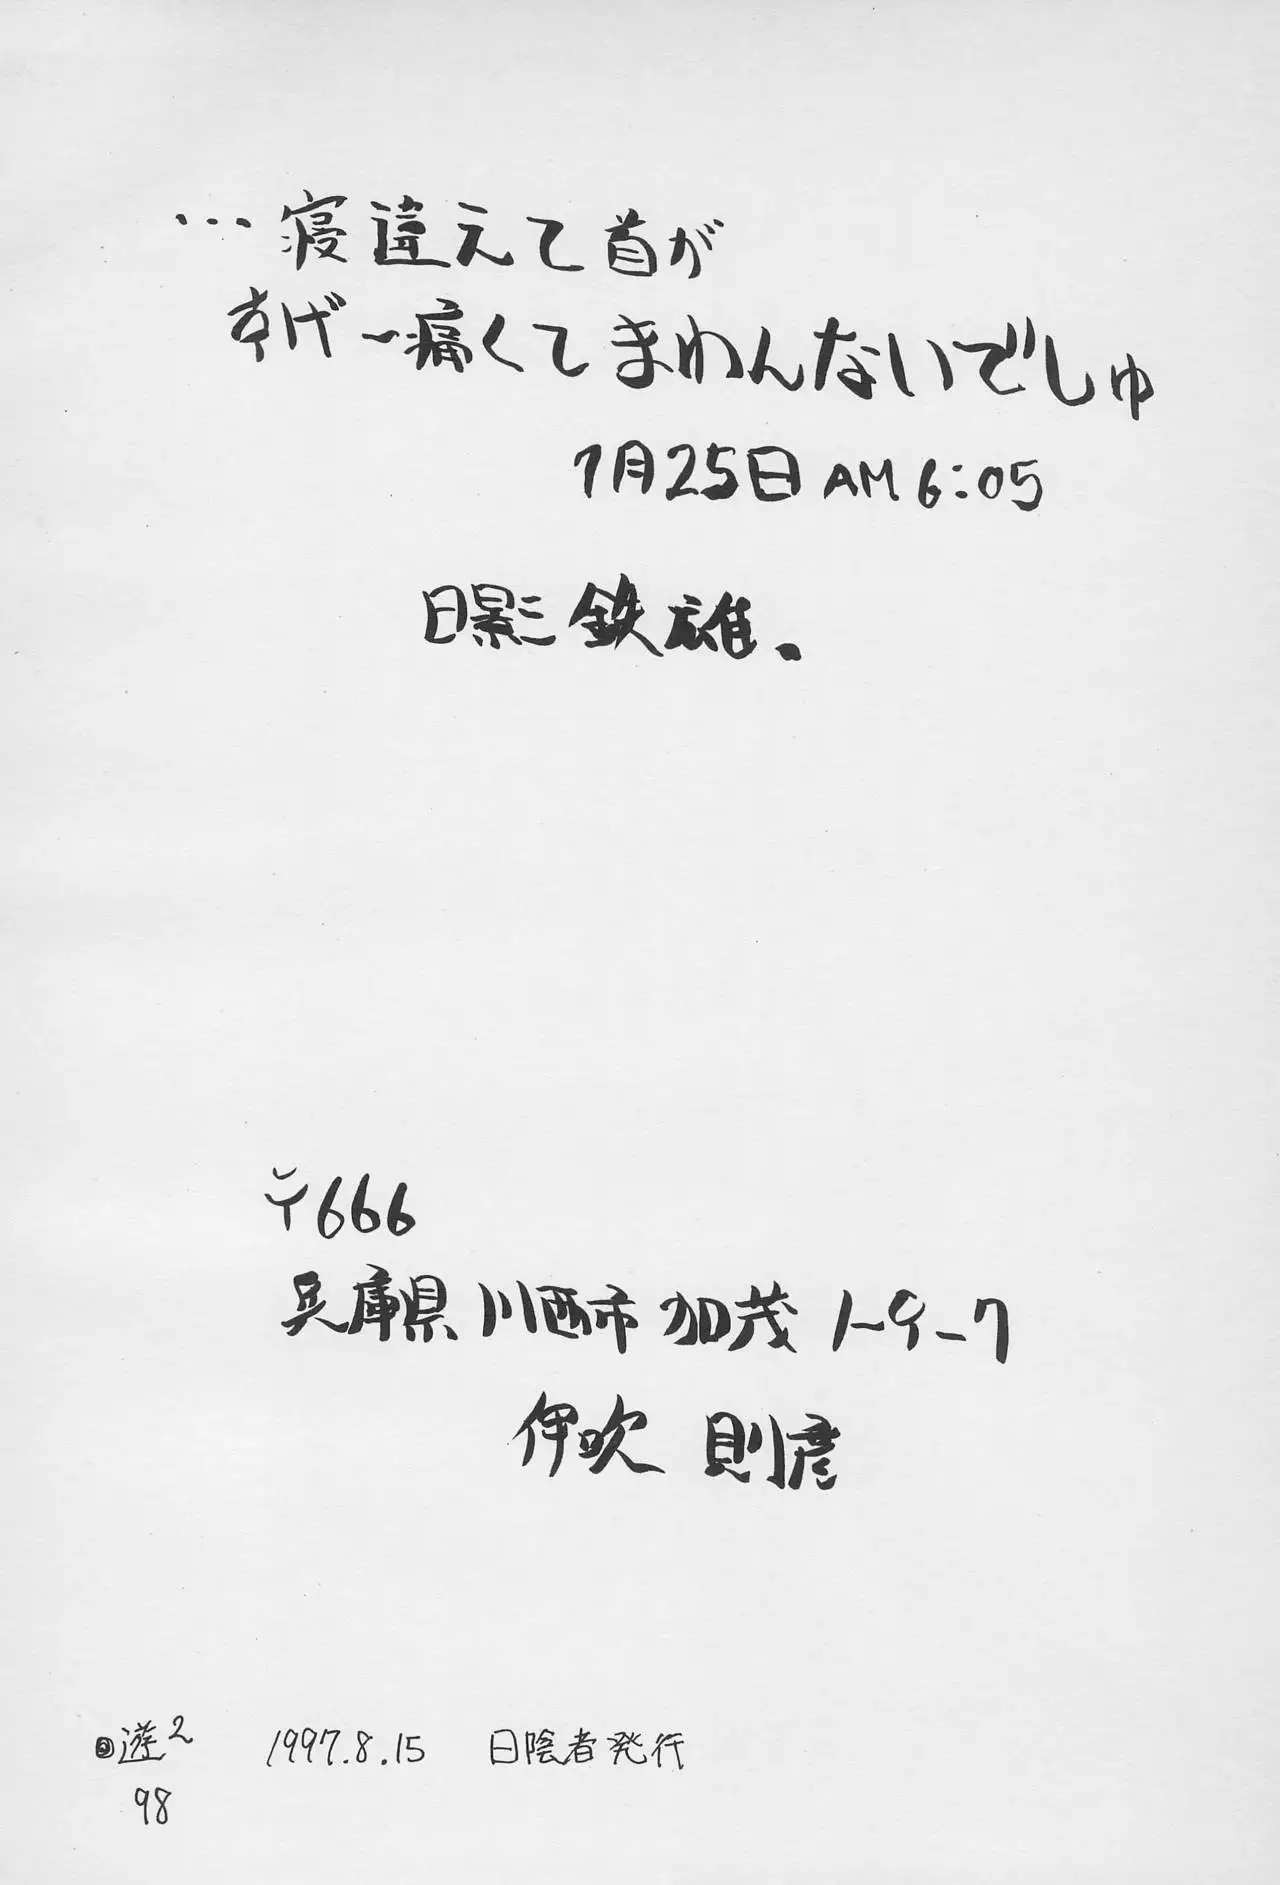 …寝違えて首が
すげ〜痛くてまわんないでしゅ
7月25日AM6:05
日影鉄雄。
〒666
兵庫県川西市加茂1-9-7
伊吹 則彦
遊2 1997.8.15 日陰者発行
98